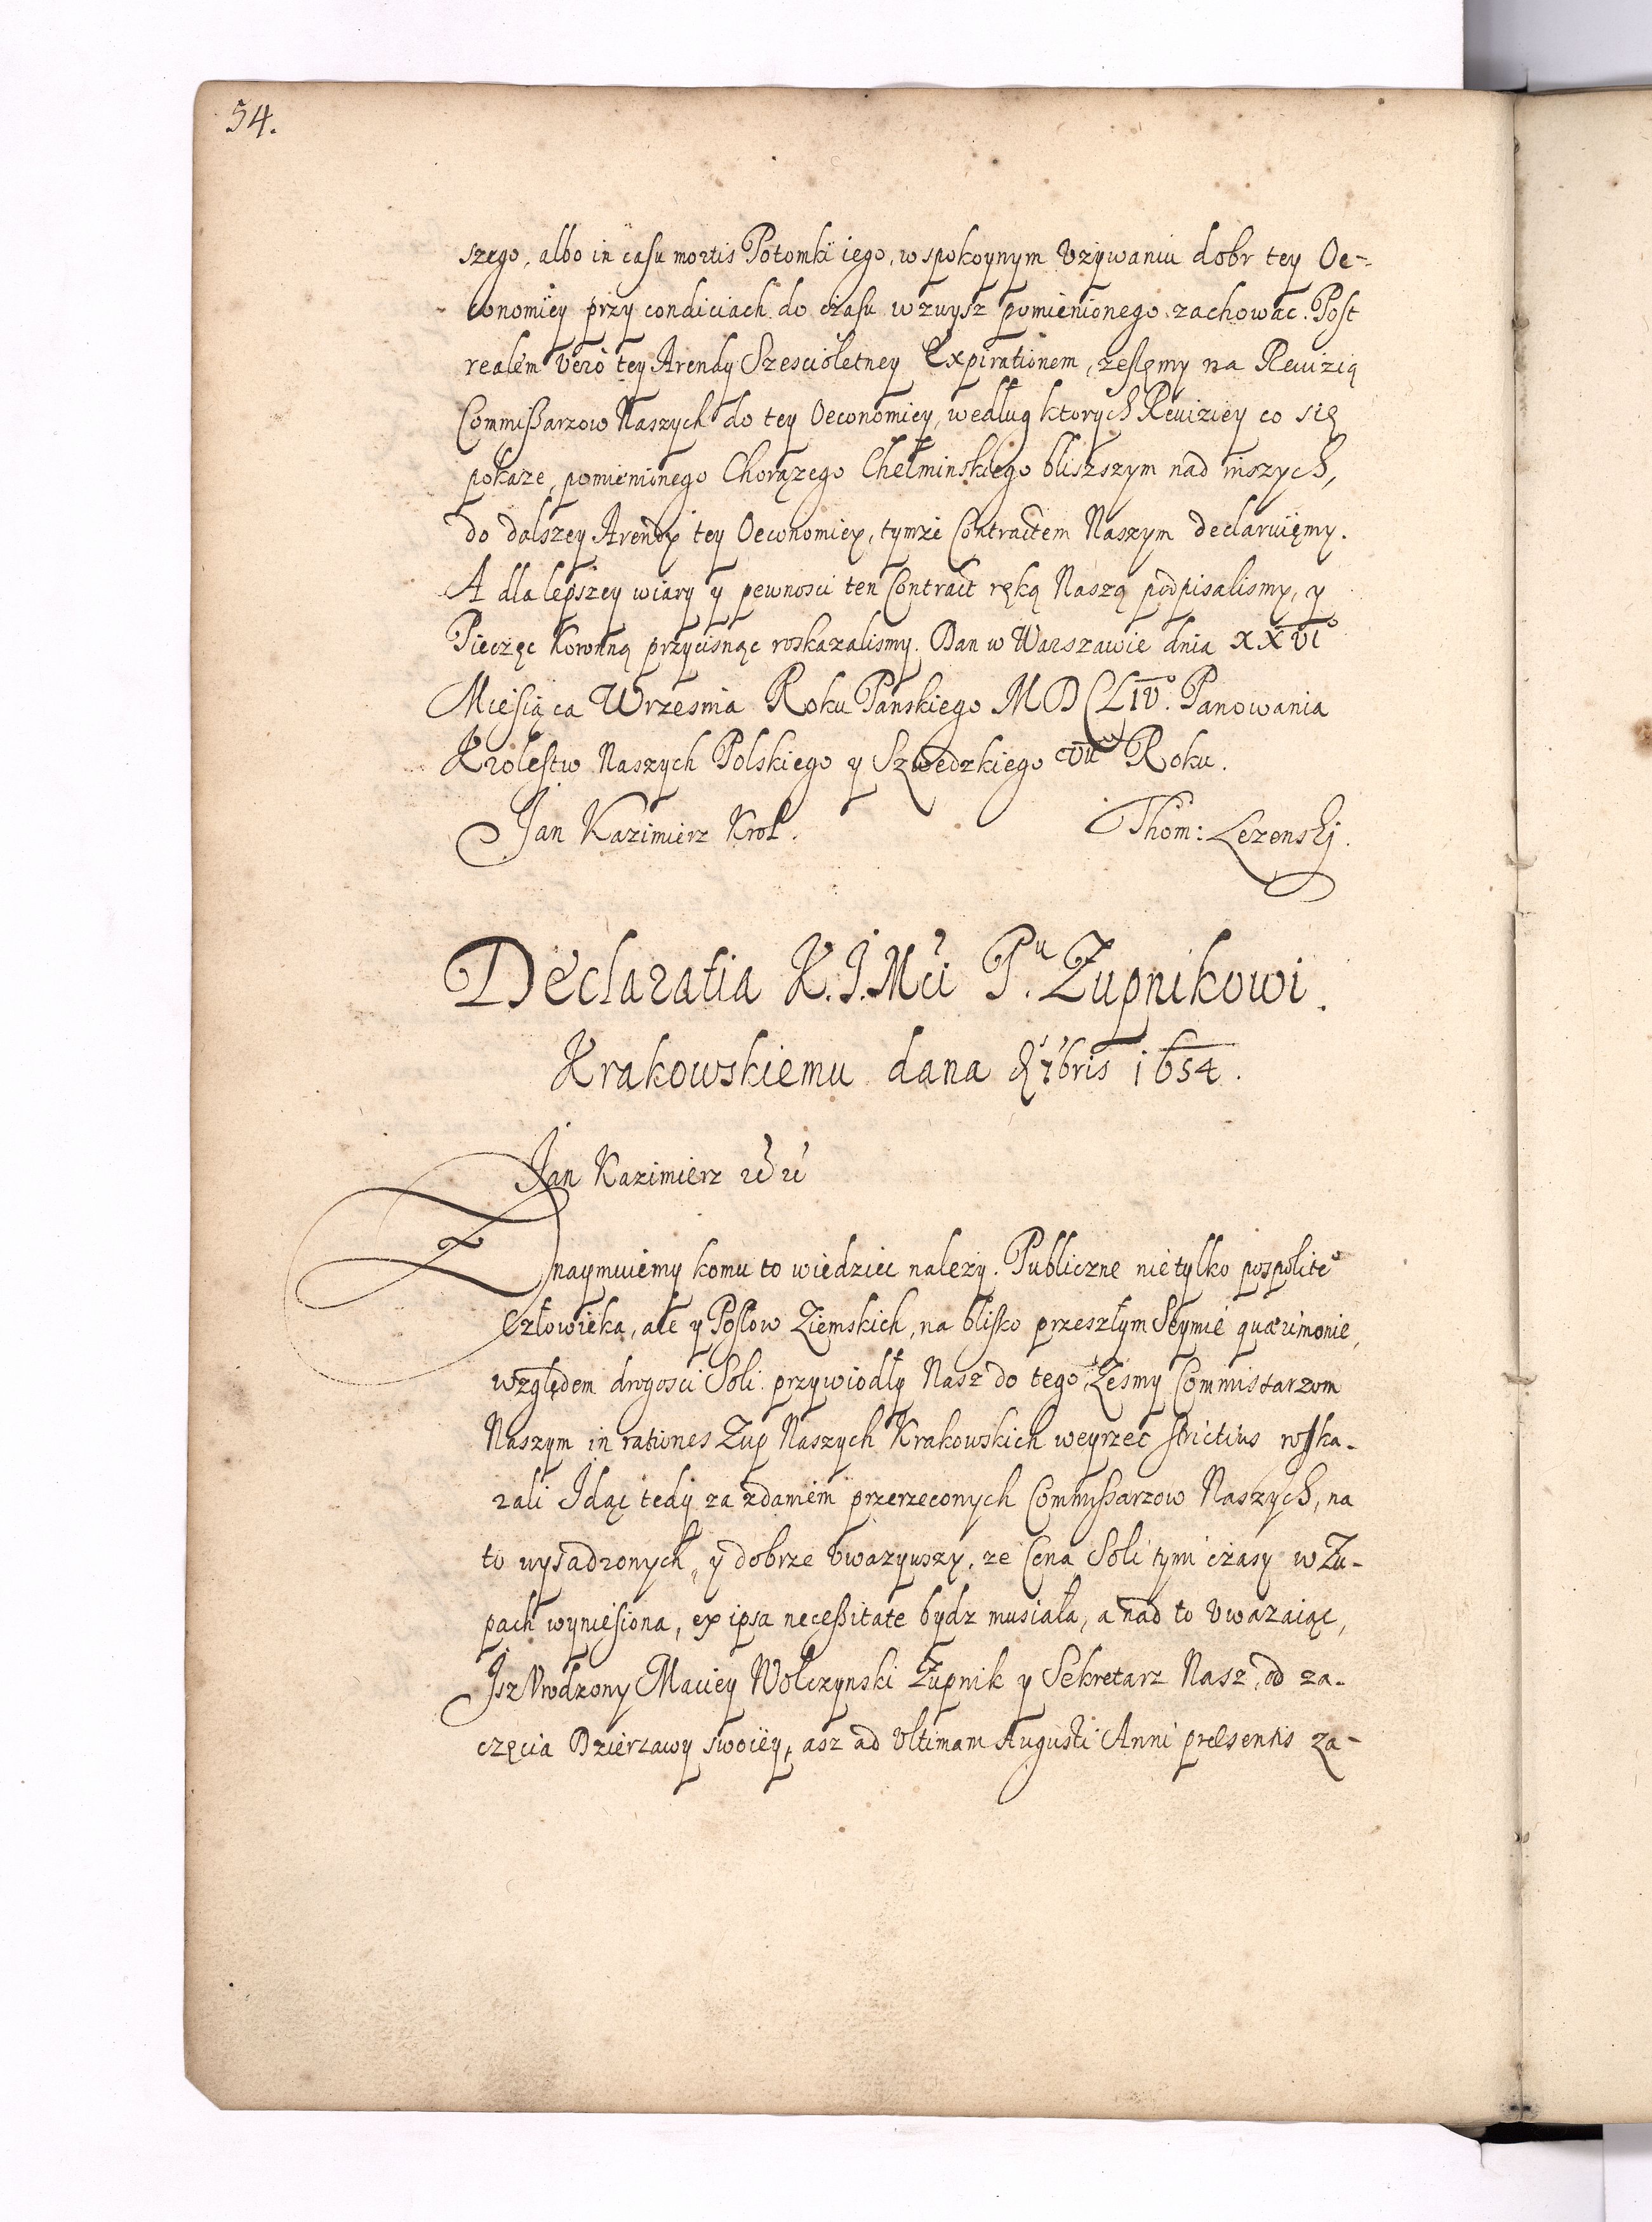 54.
szego, albo in casu mortis Potomki iego, w spokoynym Vzywaniu dobr tey Oe-
conomiey przy condiciach do czasu wzwysz pomienionego zachowac. Post
realem Vero tey Arendy Szescioletney Expirationem, zeslęmy na Rewizią
Commißarzow Naszych do tey Oeconomiey, według ktorych Rewiziey co się
pokaze, pomienionego Chorązego Chełminskiego bliszszym nad inszych,
do dalszey Arendy tey Oeconomiey, tymze Contractem Naszym declaruięmy.
A dla lepszey wiary y pewnosci ten Contract ręką Naszą podpisalismy, y
Pieczęc Koronną przycisnąc roskazalismy. Dan w Warszawie dnia XXVIº
Miesiąca Wrzesnia Roku Panskiego MDCLIVº. Panowania
Krolestw Naszych Polskiego y Szwedzkiego VIIº Roku.
Jan Kazimierz Krol.
Thom: Lezenskj.
Declaratia K.J.Mci P.u Zupnikowi.
Krakowskiemu dana 7bris 1654.
Jan Kazimierz
Znaymuiemy komu to wiedziec nalezy. Publiczne nie tylko pospoliteº
Człowieka, ale y Posłow Ziemskich, na blisko przeszłym Seymie quærimonie,
względem drogosci Soli przywiodły Nasz do tego, Zesmy Commissarzom
Naszym in rationes Zup Naszych Krakowskich weyrzec strictius roska-
zali Idąc tedy za zdaniem przerzeconych Commißarzow Naszych, na
to wysadzonych, y dobrze Vwazywszy, ze Cena Soli tymi czasy w Zu-
pach wyniesiona, ex ipsa neceßitate bydz musiała, a nad to Vwazaiąc,
Jsz Vrodzony Maciey Wolczynski Zupnik y Sekretarz Nasz, od za-
częcia Dzierzawy swoiey, asz ad Vltimam Augusti Anni præsentis za-